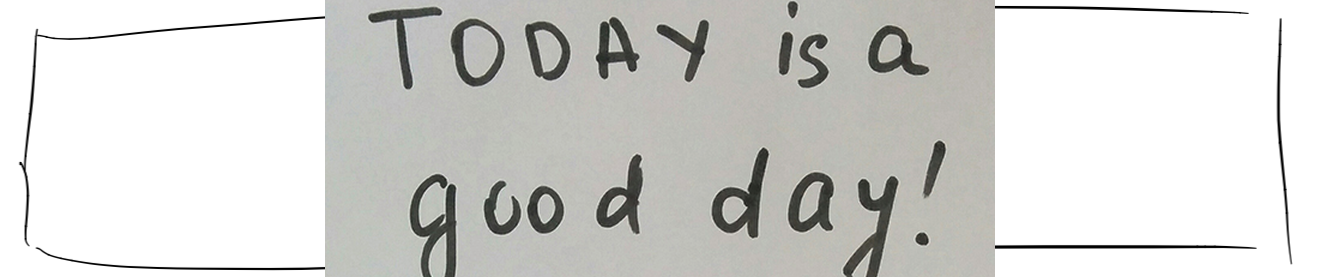 TODAY is a
good day!